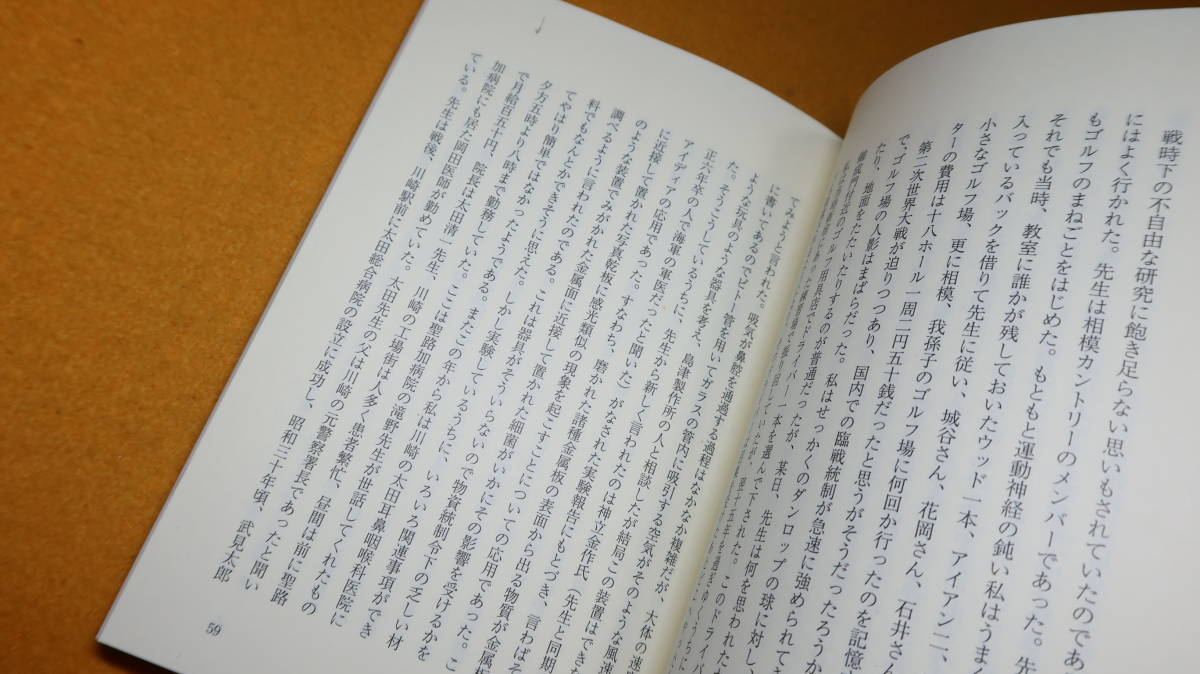 戦時下の不自由な研究に飽き足らない思いもされていたのであ
にはよく行かれた。先生は相模カントリーのメンバーであった。先
もゴルフのまねごとをはじめた。もともと運動神経の鈍い私はうまく
それでも当時、教室に誰かが残しておいたウッド一本、アイアン二、
入っているバックを借りて先生に従い、城谷さん、花岡さん、石井さん
小さなゴルフ場、更に相模、我孫子のゴルフ場に何回か行ったのを記憶
ターの費用は十八ホール一周二円五十銭だったと思うがそうだったろうか
第二次世界大戦が迫りつつあり、国内での臨戦統制が急速に強められて
で、ゴルフ場の人影はまばらだった。私はせっかくのダンロップの球に対し、
たり、地面をたたいたりするのが普通だったが、某日、先生は何を思われた
てみようと言われた。吸気が鼻腔を通過する過程はなかなか複雑だが、大体の速
に書いてあるのでピトー管を用いてガラスの管内に吸引する空気がそのような風速
ような玩具のような器具を考え、島津製作所の人と相談したが結局この装置はでき
た。そうこうしているうちに、先生から新しく言われたのは神立金作氏（先生と同期
正六年卒の人で海軍の軍医だったと聞いた）がなされた実験報告にもとづき、言わばそ
アイディアの応用であった。すなわち、磨かれた諸種金属板の表面から出る物質が金属板
に近接して置かれた写真乾板に感光類似の現象を起こすことについての応用であった。こ
のような装置でみがかれた金属面に近接して置かれた細菌がいかにその影響を受けるかを
調べるように言われたのである。これは器具がそういらないので物資統制令下の乏しい材
科でもなんとかできそうに思えた。しかし実験しているうちに、いろいろ関連事項ができ
てやはり簡単ではなかったようである。またこの年から私は川崎の太田耳鼻咽喉科医院に
夕方五時より八時まで勤務していた。ここは聖路加病院の滝野先生が世話してくれたもの
で月給百五十円、院長は太田清一先生、川崎の工場街は人多く患者繁忙、昼間は前に聖路
加病院にも居た両田医師が勤めていた。太田先生の父は川崎の元警察署長であったと聞い
ている。先生は戦後、川崎駅前に太田総合病院の設立に成功し、昭和三十年頃、武見太郎
59